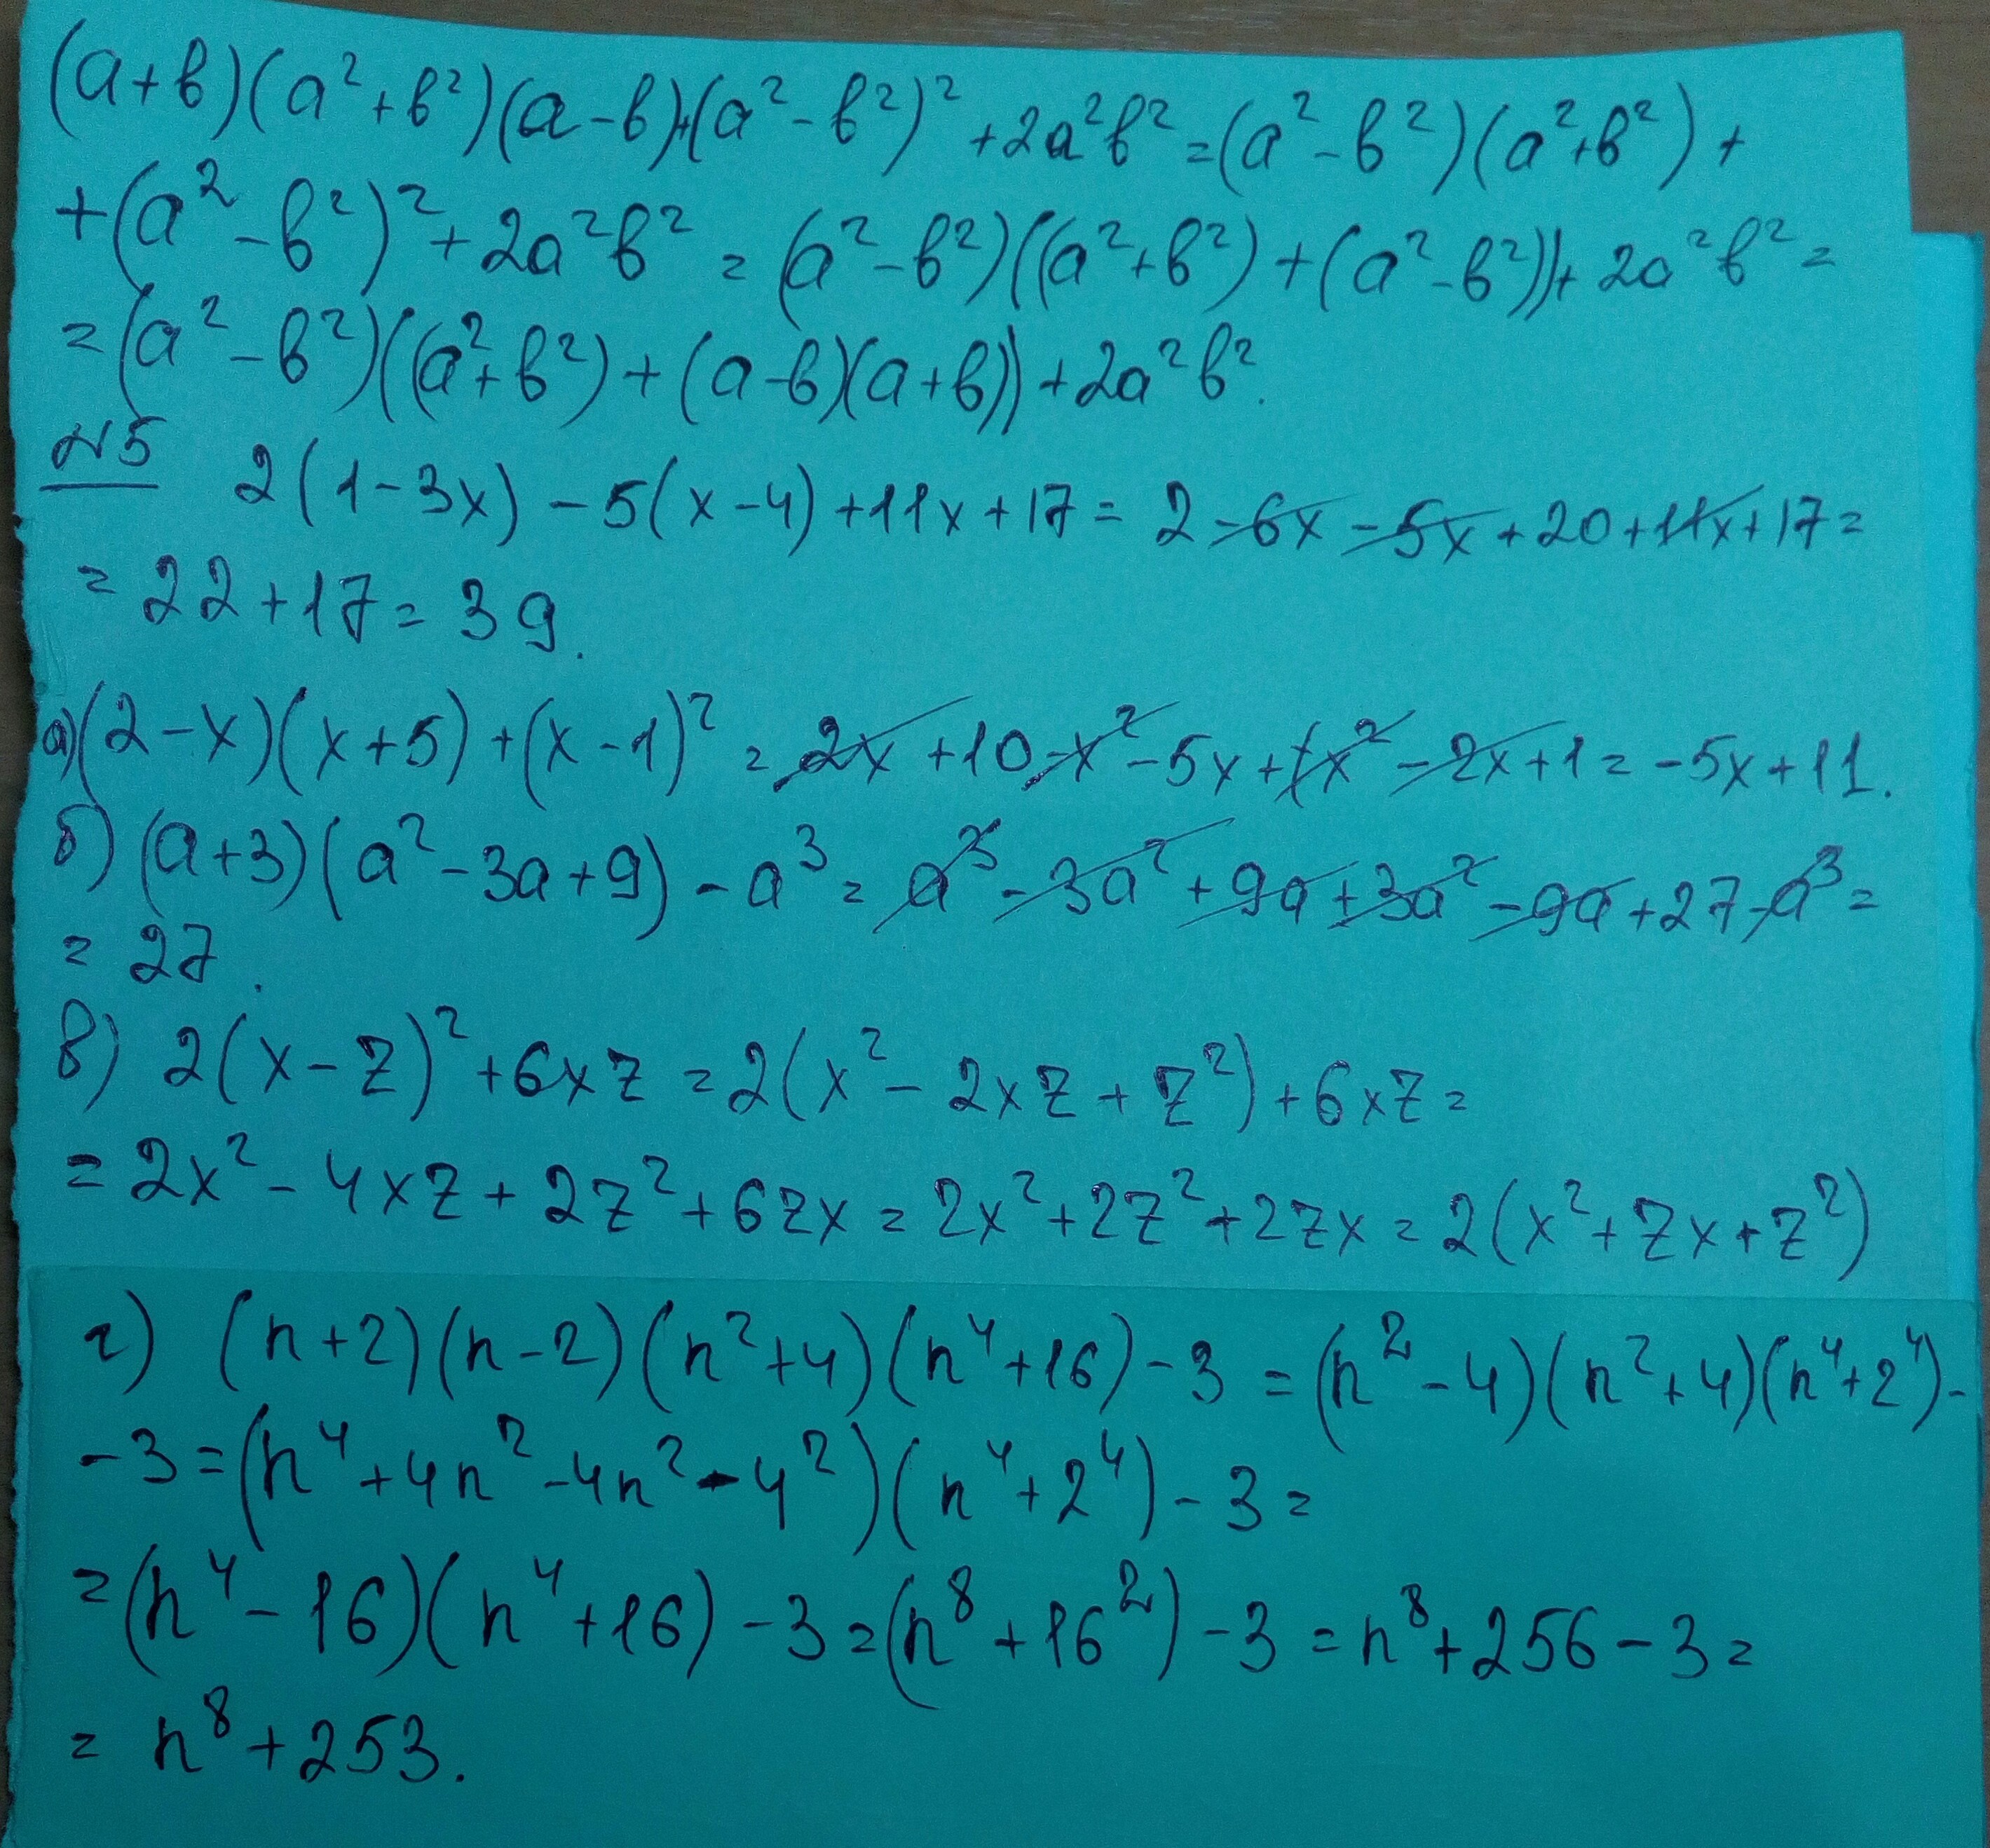 (a+в)(a²+в²)(a-в)+(a²-в²)²+2a²в²=(a²-в²)(a²+в²)+
+(a²-в²)²+2a²в²=(a²-в²)((a²+в²)+(a²-в²))+2a²в²=
=(a²-в²)((a²+в²)+(a-в)(a+в))+2a²в².
№5 2(1-3x)-5(x-4)+11x+17=2-6x-5x+20+11x+17=
=22+17=39.
а)(2-x)(x+5)+(x-1)²=2x+10-x²-5x+x²-2x+1=-5x+11.
б) (a+3)(a²-3a+9)-a³=a³-3a²+9a+3a²-9a+27-a³=
=27.
в) 2(x-z)²+6xz=2(x²-2xz+z²)+6xz=
=2x²-4xz+2z²+6zx=2x²+2z²+2zx=2(x²+zx+z²)
г) (n+2)(n-2)(n²+4)(n⁴+16)-3=(n²-4)(n²+4)(n⁴+2⁴)-
-3=(n⁴+4n²-4n²-4²)(n⁴+2⁴)-3=
=(n⁴-16)(n⁴+16)-3=(n⁸+16²)-3=n⁸+256-3=
=n⁸+253.